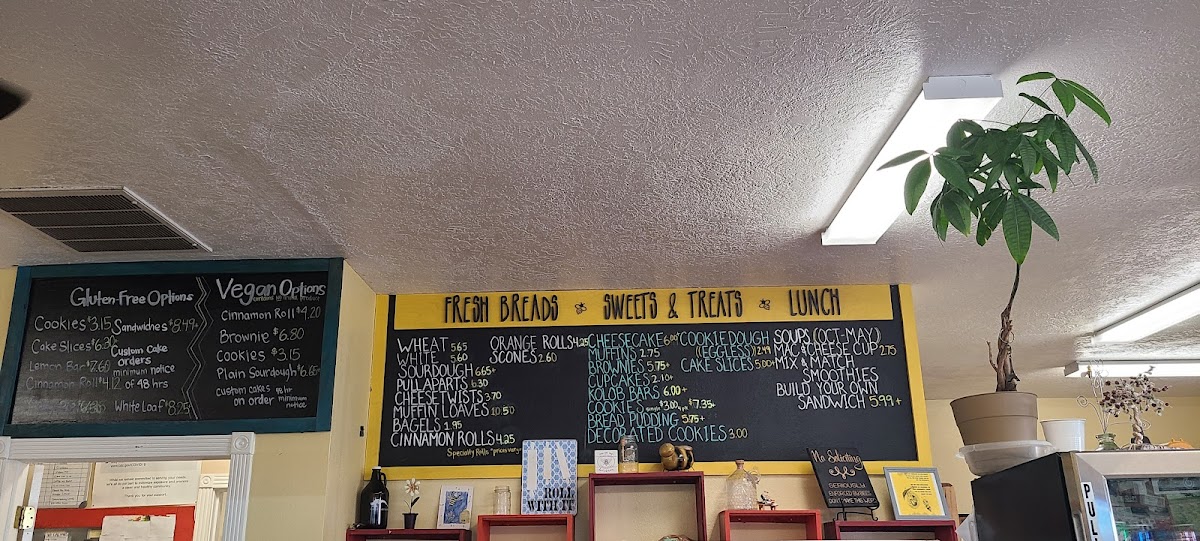 Gluten Free Options
Cookies $3.15
Cake Slices $6.30
Lemon Bar $7.60
Cinnamon Roll $4.12
Sandwiches $8.49+
Custom Cake
orders
minimum notice
of 48 hrs
White Loaf $8.25
Vegan Options
Cinnamon Roll $4.20
Brownie $6.80
Cookies $3.15
Plain Sourdough $6.65+
custom cakes 48 hr
on order minimum
notice
FRESH BREADS SWEETS & TREATS LUNCH
WHEAT 5.65
WHITE 5.60
SOURDOUGH 6.65+
PULLAPARTS 6.30
CHEESETWISTS 3.70
MUFFIN LOAVES 10.50
BAGELS 1.95
CINNAMON ROLLS 4.25
Specialty Rolls *prices vary
ORANGE ROLLS 4.25
SCONES 2.60
CHEESECAKE 6.00+
MUFFINS 2.75
BROWNIES 5.75+
CUPCAKES 2.10+
KOLOB BARS 6.00+
COOKIES single $3.00 $7.35+
BREAD PUDDING 5.75+
DECORATED COOKIES 3.00
COOKIEDOUGH
((EGGLESS)) 2.49
CAKE SLICES 5.00+
SOUPS (OCT-MAY)
MAC & CHEESE CUP 2.75
MIX & MATCH
SMOOTHIES
BUILD YOUR OWN
SANDWICH 5.99+
ROLL
WITH IT
No Soliciting
SERIOUSLY
Thank you for your support.
PULL